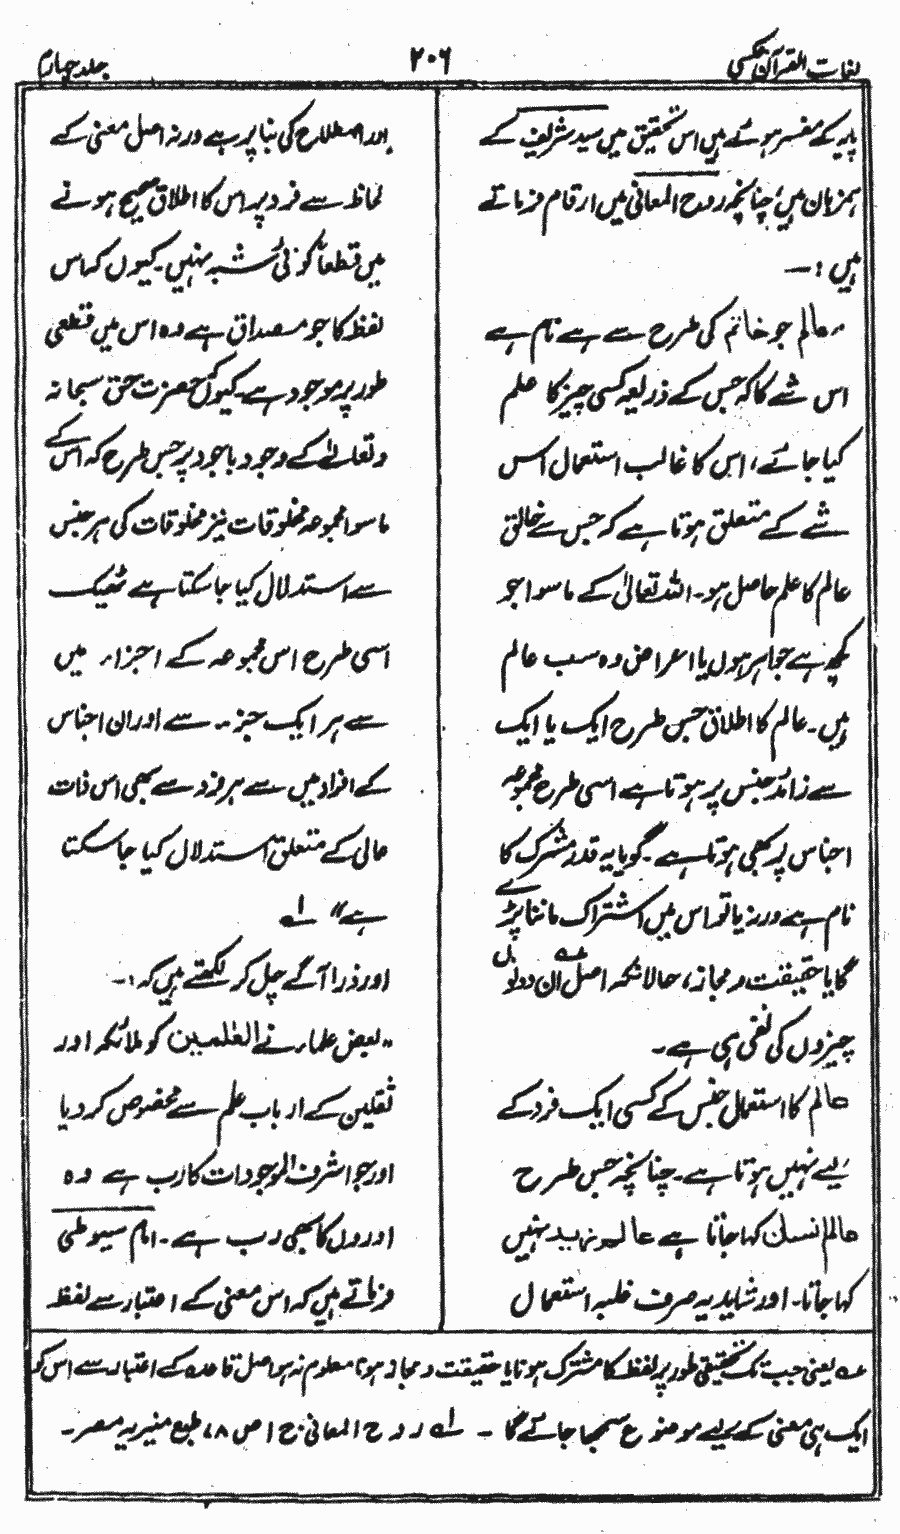 لغات القرآن عکسی
۲۰۶
جلد چہارم
پایہ کے مفسر ہوئے ہیں اس تحقیق میں سید شریف کے
ہمزبان ہیں، چنانچہ روح المعانی میں ارقام فرماتے
ہیں :—
"عالم جو خاتم کی طرح سے ہے نام ہے
اس شے کا کہ جس کے ذریعہ کسی چیز کا علم
کیا جائے، اس کا غالب استعمال اس
شے کے متعلق ہوتا ہے کہ جس سے خالق
عالم کا علم حاصل ہو۔ اللہ تعالیٰ کے ماسوا جو
کچھ ہے جواہر ہوں یا اعراض وہ سب عالم
ہیں۔ عالم کا اطلاق جس طرح ایک یا ایک
سے زائد جنس پر ہوتا ہے اسی طرح مجموعہ
اجناس پر بھی ہوتا ہے۔ گویا یہ قدر مشترک کا
نام ہے ورنہ یا تو اس میں اشتراک ماننا پڑے
گا یا حقیقت و مجاز، حالانکہ اصل ان دونوں
چیزوں کی نفی ہی ہے۔
عالم کا استعمال جنس کے کسی ایک فرد کے
لیے نہیں ہوتا ہے۔ چنانچہ جس طرح
عالم انسان کہا جاتا ہے عالم زید نہیں
کہا جاتا۔ اور شاید یہ صرف غلبہ استعمال
اور اصطلاح کی بنا پر ہے ورنہ اصل معنی کے
لحاظ سے فرد پر اس کا اطلاق صحیح ہونے
میں قطعاً کوئی شبہ نہیں۔ کیوں کہ اس
لفظ کا جو مصداق ہے وہ اس میں قطعی
طور پر موجود ہے۔ کیوں کہ حضرت حق سبحانہ
وتعالےٰ کے وجود باجود پر جس طرح کہ اس کے
ماسوا مجموعہ مخلوقات نیز مخلوقات کی ہر جنس
سے استدلال کیا جا سکتا ہے ٹھیک
اسی طرح اس مجموعہ کے اجزاء میں
سے ہر ایک جزء سے اور ان اجناس
کے افراد میں سے ہر فرد سے بھی اس ذات
عالی کے متعلق استدلال کیا جا سکتا
ہے" لہ
اور ذرا آگے چل کر لکھتے ہیں کہ :۔
"بعض علماء نے العٰلمین کو ملائکہ اور
ثقلین کے ارباب علم سے مخصوص کر دیا
اور جو اشرف الموجودات کا رب ہے وہ
اوروں کا بھی رب ہے۔ امام سیوطی
فرماتے ہیں کہ اس معنی کے اعتبار سے لفظ
عہ یعنی جب تک تحقیقی طور پر لفظ کا مشترک ہونا یا حقیقت و مجاز ہونا معلوم نہ ہو اصل قاعدہ کے اعتبار سے اس کو
ایک ہی معنی کے لیے موضوع سمجھا جائے گا ۔ لہ روح المعانی ج ۱ ص ۷۸، طبع منیریہ مصر۔